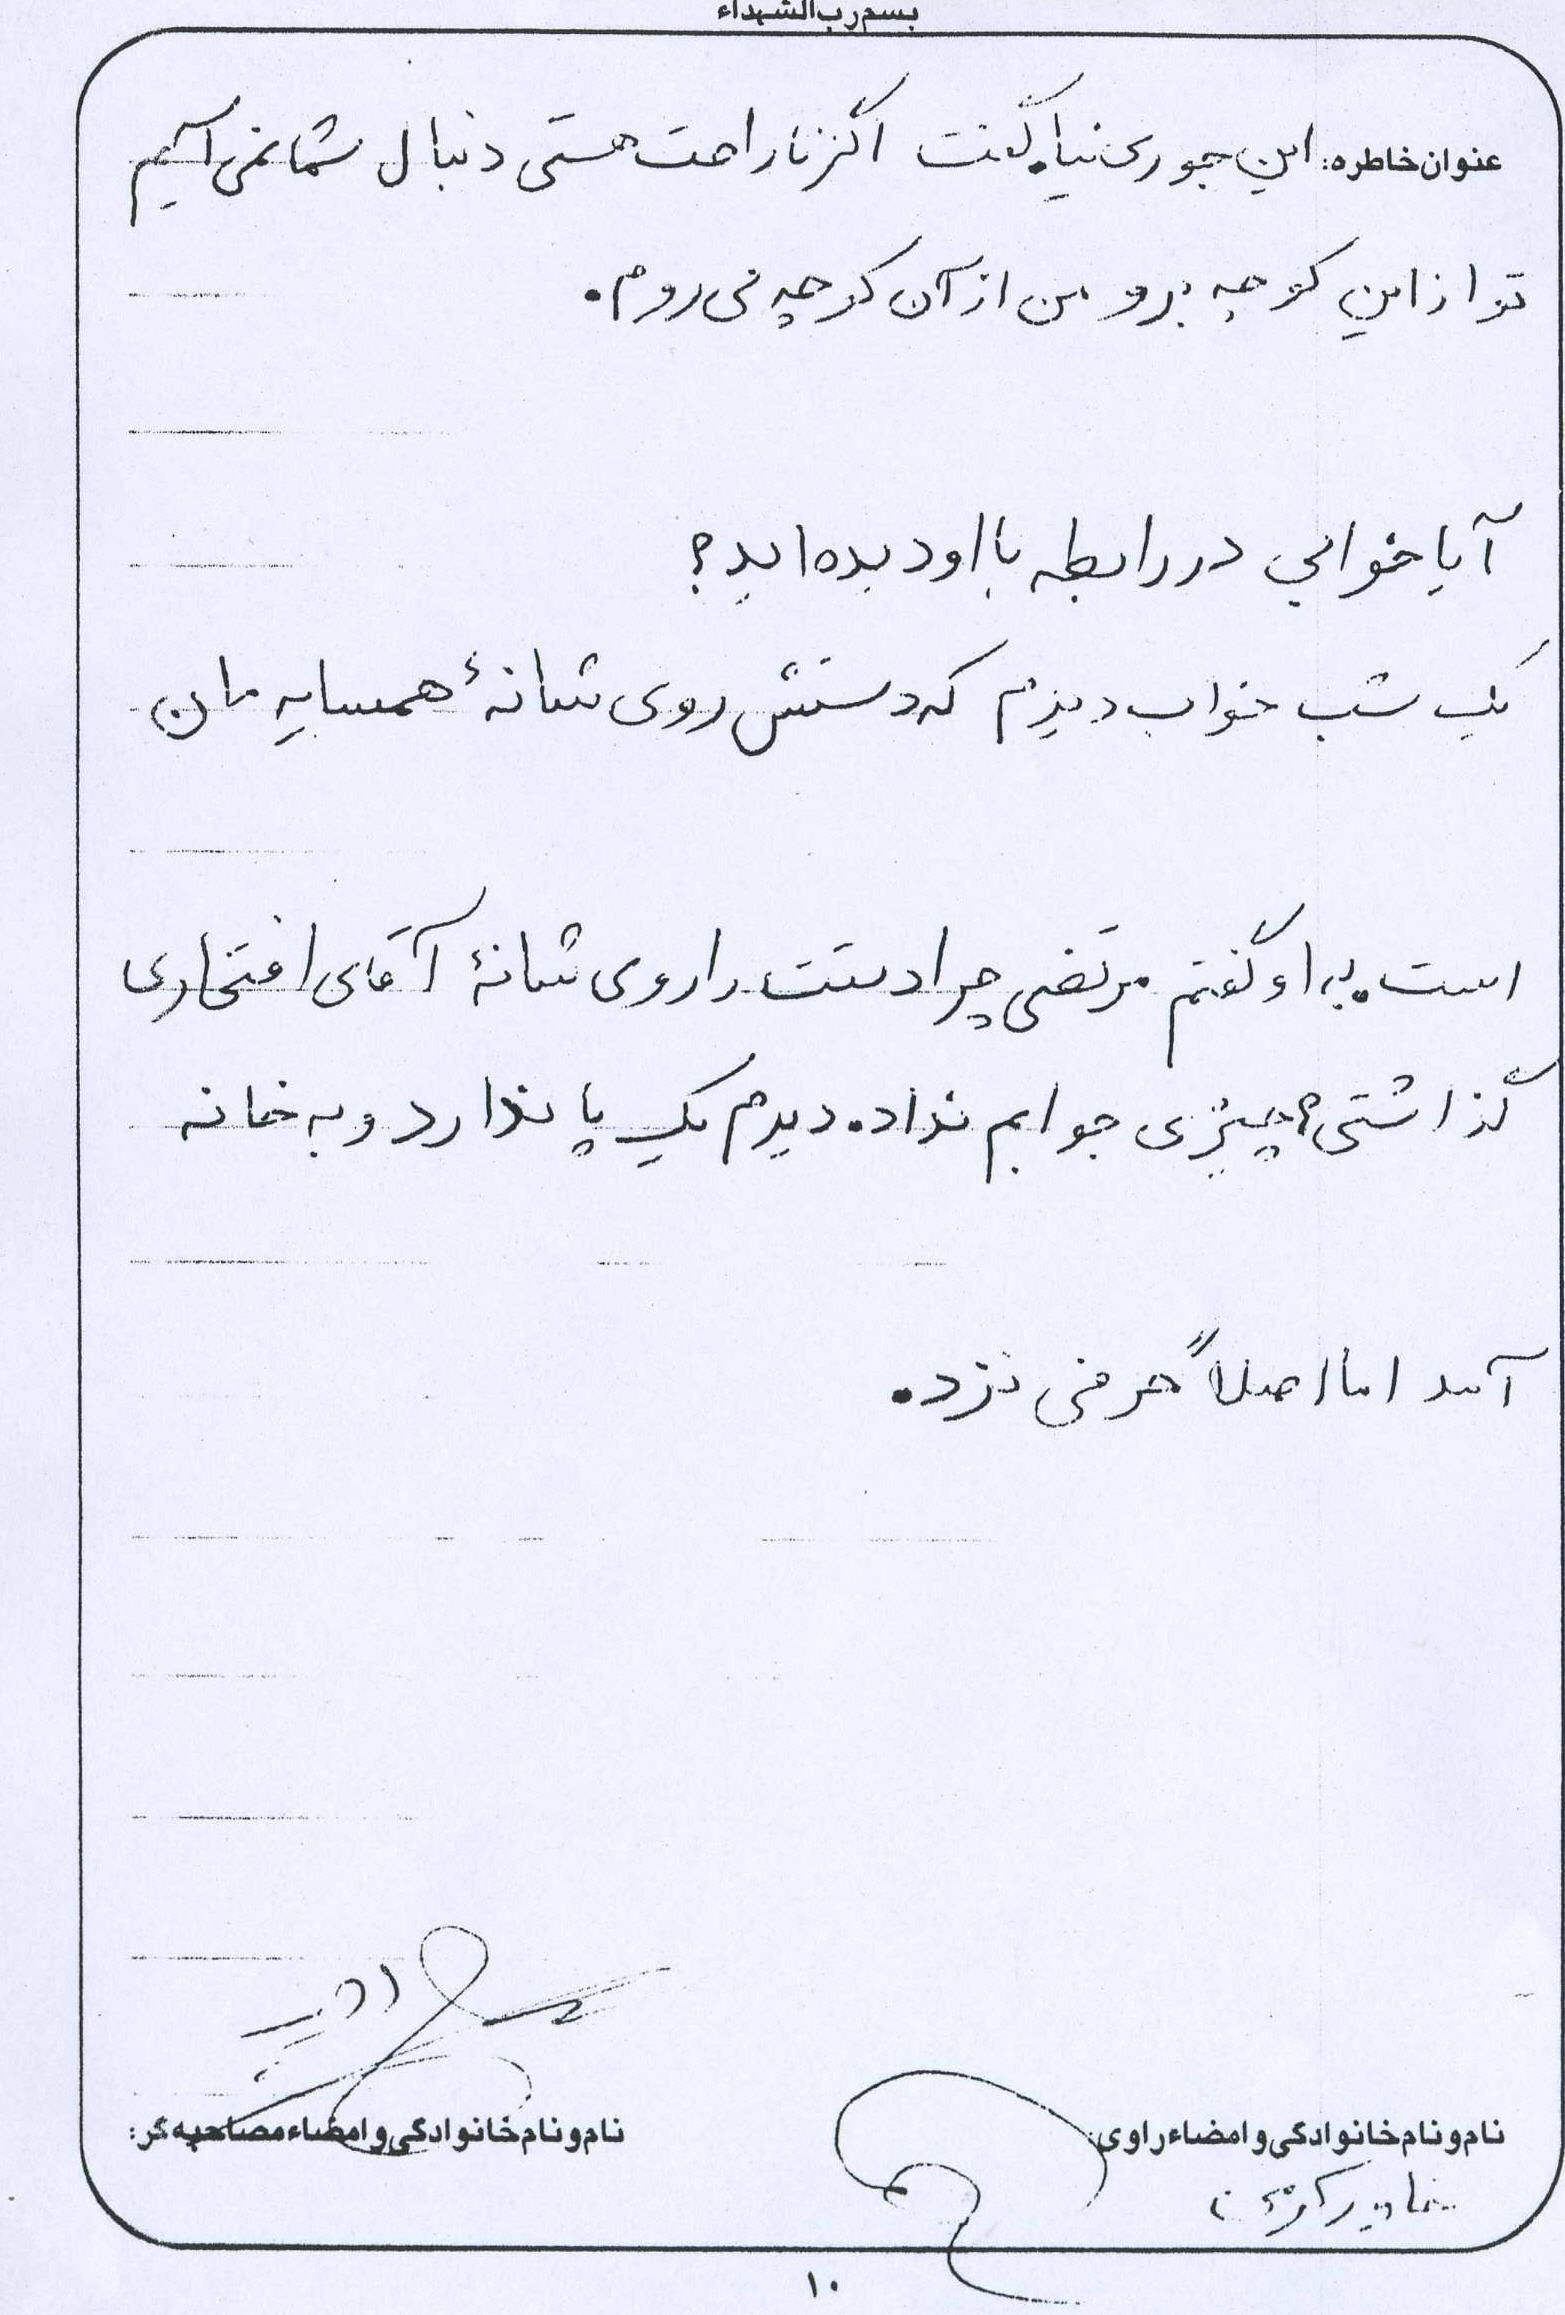 بسم رب الشهداء
عنوان خاطره: این جوری نیا. گفت اگر ناراحت هستی دنبال شما نمی آئیم
تو از این کوچه برو من از آن کوچه می روم.
آیا خوابی در رابطه با او دیده اید؟
یک شب خواب دیدم که دستش روی شانهٔ همسایه مان
است. به او گفتم مرتضی چرا دستت را روی شانهٔ آقای افتخاری
گذاشتی؟ چیزی جوابم نداد. دیدم یک پا ندارد و به خانه
آمد اما اصلاً حرفی نزد.
نام و نام خانوادگی و امضاء راوی:
نام و نام خانوادگی و امضاء مصاحبه گر:
۱۰